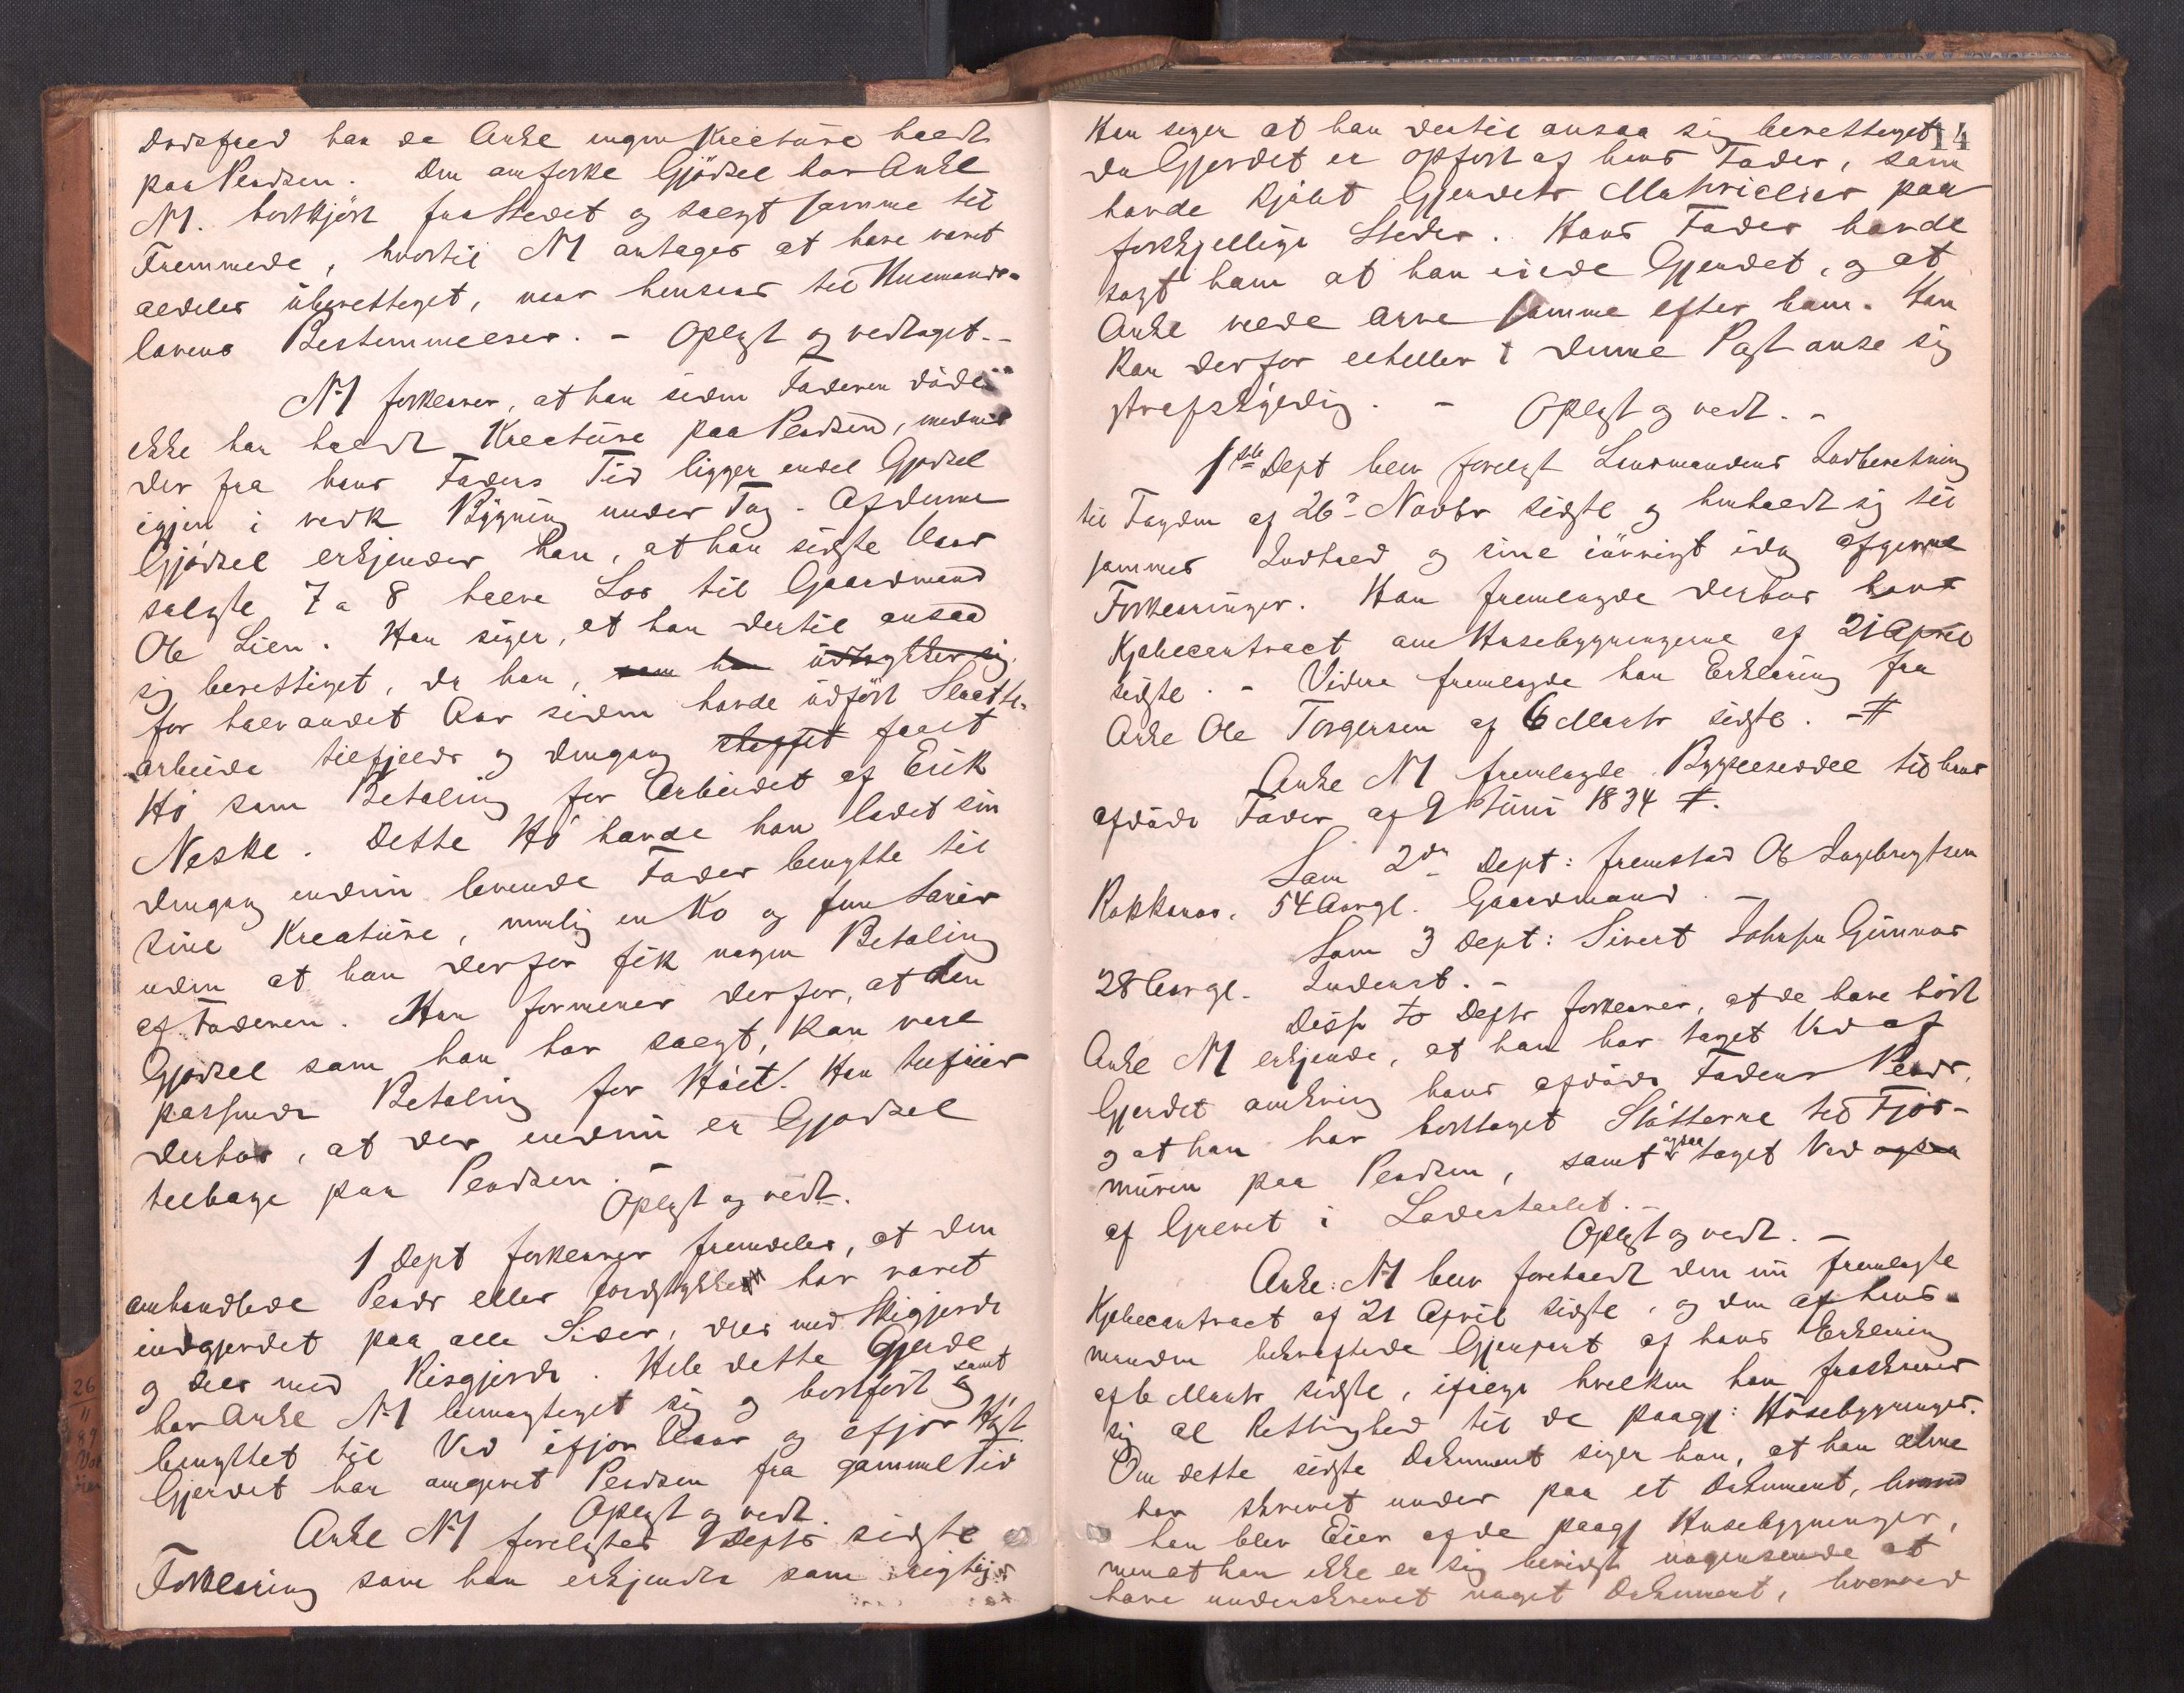 Dødsfald har de Ankl ingen Kreature holdt
paa Pladsen. Den omforkl Gjødsel har Ankl
N1. bortkjørt fra Stedet og solgt samme til
Fremmede, hvortil N1 antages at have været
aldeles uberettiget, naar hensees til Husmands-
lovens Bestemmelser. - Oplæst og vedtaget. -
N1 forklarer, at han siden Faderen døde
ikke har holdt Kreature paa Pladsen, medens
der fra hans Faders Tid ligger endel Gjødsel
igjen i vedk Bygning under Tag. Af denne
Gjødsel erkjender han, at han sidste Vaar
solgte 7 a 8 halve Læs til Gaardmand
Ole Lien. Han siger, at han dertil ansaa
sig berettiget, da han, som han udtrykker sig
for halvandet Aar siden havde udført Slaatte-
arbeide tilfjelds og dengang sluppet faaet
Hø som Betaling for Arbeidet af Erik
Neske. Dette Hø havde han ladet sin
dengang endnu levende Fader benytte til
sine Kreature, nemlig en Ko og fem Sauer
uden at han derfor fik nogen Betaling
af Faderen. Han formener derfor, at den
Gjødsel som han har solgt, kan være
passende Betaling for Høet. Han tilføier
derhos, at der endnu er Gjødsel
tilbage paa Pladsen. -
Oplæst og vedt.
1 Dept forklarer fremdeles, at den
omhandlede Plads eller Jordstykke har været
indgjerdet paa alle Sider, dels med Skigjerde
og dels med Risgjerde. Hele dette Gjerde
har Ankl N1 bemægtiget sig og bortført og samt
benyttet til Ved ifjor Vaar og ifjor Høst.
Gjerdet har omgivet Pladsen fra gammel Tid
Oplæst og vedt.
Ankl N1 forelistes 1 Depts sidste
Forklaring som han erkjender som rigtig
14
Han siger at han dertil ansaa sig berettiget
da Gjerdet er opført af hans Fader, som
havde kjøbt Gjerdets Materialier paa
forskjellige Steder. Hans Fader havde
sagt ham at han eiede Gjerdet, og at
Ankl vilde arve samme efter ham. Han
kan derfor eiheller i denne Post anse sig
strafskyldig. - Oplæst og vedt. -
1ste Dept blev forelæst Lensmandens Indberetning
til Fogden af 26de Novbr sidste og henholdt sig til
sammes Indhold og sine iøvrigt idag afgivne
Forklaringer. Han fremlagde derhos hans
Kjøbecontract om Husebygningerne af 21 April
sidste. - Videre fremlagde han Erklæring fra
Ankl Ole Torgersen af 6 Marts sidste. - #
Ankl N1 fremlagde Bygselseddel til hans
afdøde Fader af 9 Juni 1834 #.
Som 2den Dept: fremstod Ole Ingebrigtsen
54 Aargl. Gaardmand. -
Som 3 Dept: Sivert Johnsen
28 Aargl. Inderst. -
Disse to Depts forklarer, at de have hørt
Ankl N1 erkjende, at han har taget Ved af
Gjerdet omkring hans afdøde Faders Plads,
og at han har borttaget Støtterne til Fjøs-
muren paa Pladsen, samt ogsaa taget Ved ogsaa
af Gulvet i Ladestaalet. -
Oplæst og vedt. -
Ankl: N1 blev foreholdt den nu fremlagte
Kjøbecontract af 21 April sidste, og den af Lens-
manden bekræftede Gjenpart af hans Erklæring
af 6 Marts sidste, ifølge hvilken han fraskriver
sig al Rettighed til de paagj: Husebygninger.
Om dette sidste Dokument siger han, at han alene
har skrevet under paa et Dokument, hvorved
han blev Eier af de paagj Husebygninger,
men at han ikke er sig bevidst nogensinde at
have underskrevet noget Dokument, hvorved
26
11
89